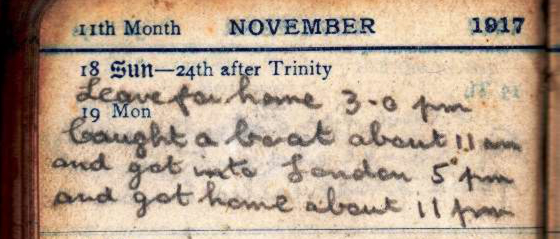 11th Month NOVEMBER 1917
18 Sun—24th after Trinity
Leave for home 3-0 pm
19 Mon
Caught a boat about 11 am
and got into London 5 pm
and got home about 11 pm